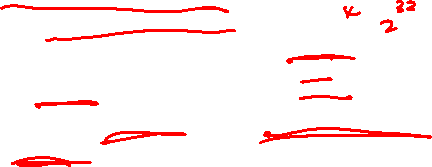 k 2²²